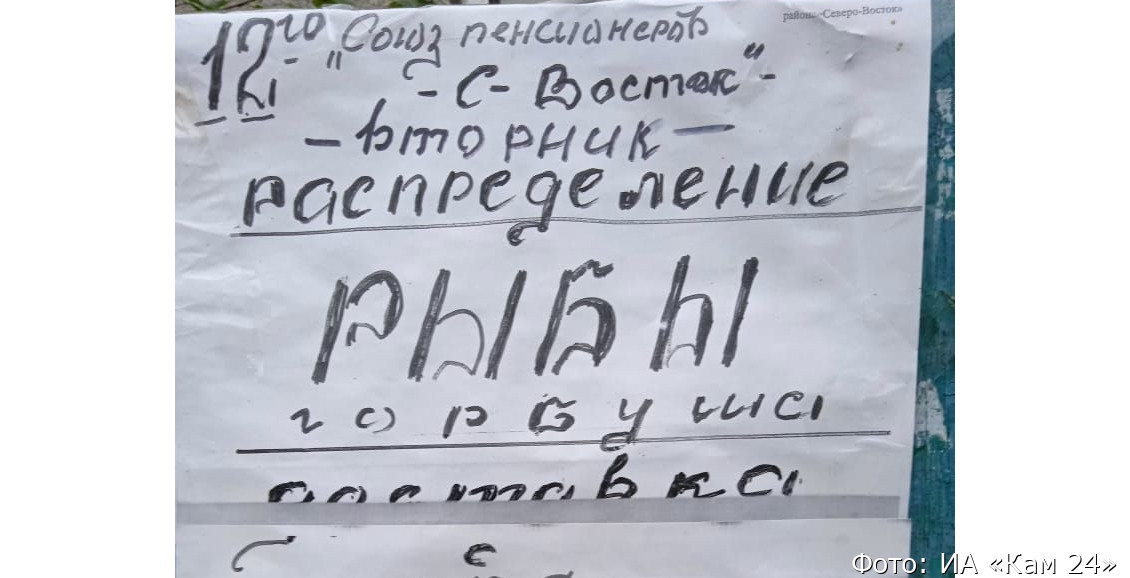 района «Северо-Восток»
12го "Союз пенсионеров
-С-Восток"-
-вторник-
распределение
РЫБЫ
горбуша
доставка
Фото: ИА «Кам 24»